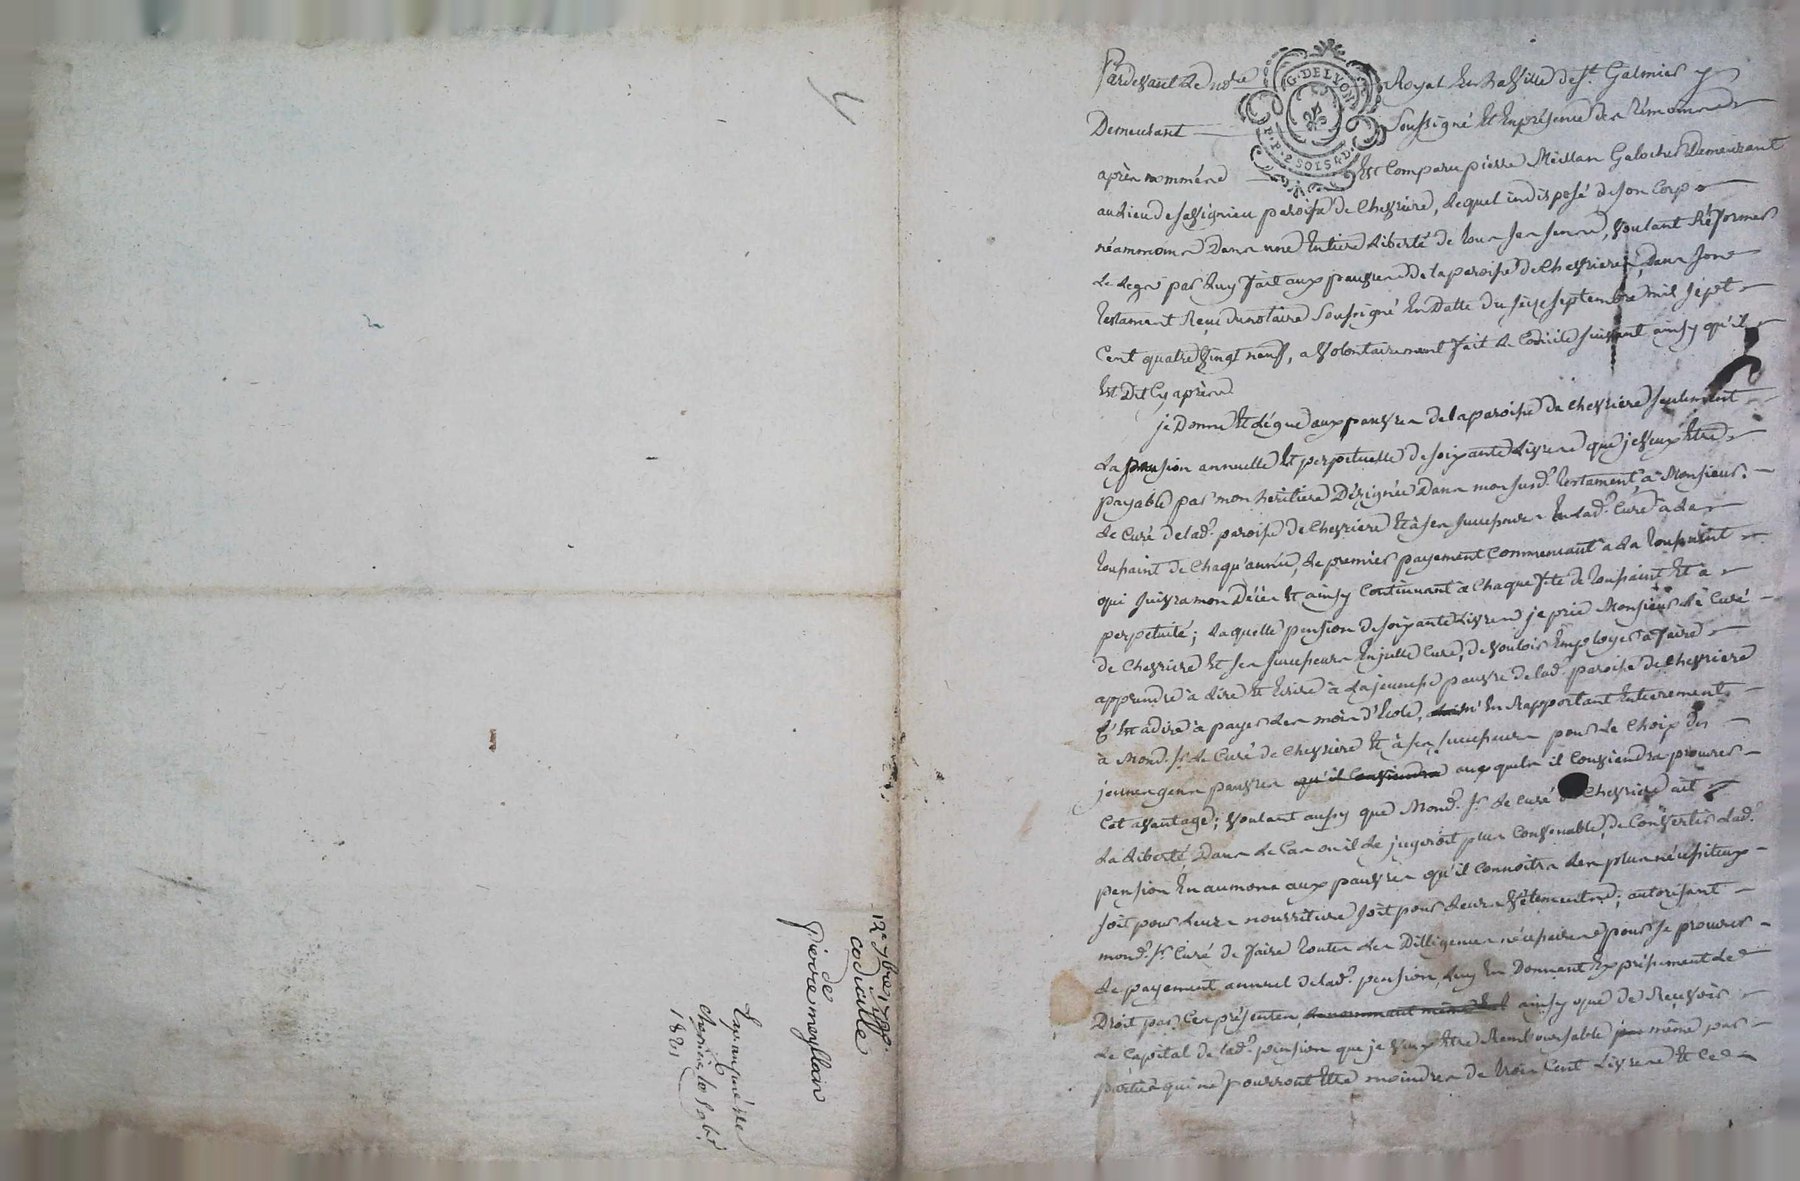 Pardevant Le no.re Royal En La Ville de St. Galmier
G. DE LYON
P. P. 2 SOLS 4 D.
Demeurant soussigné Et En présence des Témoins
après nommés Est Comparu pierre Meillan Galocher Demeurant
au Lieu de paroisse de Chevriere, Lequel indisposé de son Corp
néammoins Dans une Entiere Liberté de tous ses sens, Voulant Réformer
Le Legs par Luy fait aux pauvres de la paroisse de Chevrieres, Dans son
Testament Reçu du notaire soussigné En Datte du seize septembre mil sept
Cent quatre Vingt neuf, a Volontairement fait Le Codicile suivant ainsy qu'il
Est Dit Cy après
je Donne Et Légue aux pauvres de la paroisse de Chevriere seulement
La pension annuelle Et perpetuelle de soixante Livres que je Veux Etre
payable par mon heritiere Désignée Dans mon susd. Testament, à Monsieur
Le Curé de lad. paroisse de Chevriere Et à ses successeurs En lad. Cure à La
toussaint de Chaqu'année, Le premier payement Commencant à La toussaint
qui suivra mon Décès Et ainsy Continuant à Chaque fete de toussaint Et à
perpetuité; Laquelle pension de soixante Livres je prie Monsieur Le Curé
de Chevriere Et ses successeurs En jcelle Cure, de Vouloir Employer à faire
apprendre à Lire Et Ecrire à La jeunesse pauvre de lad. paroisse de Chevriere
C'est adire à payer Les mois d'Ecole, m'En Rapportant Entierement
à Mond. sr. Le Curé de Chevriere Et à ses successeurs pour Le Choix des
jeunes gens pauvres qu'il Conviendra auxquels il Conviendra procurer
Cet avantage; Voulant aussy que Mond. sr. Le Curé de Chevriere ait
La Liberté Dans Le Cas où il Le jugeroit plus Convenable, de Convertir Lad.
pension En aumone aux pauvres qu'il Connoitra Les plus nécessiteux
soit pour Leurs nourriture soit pour Leurs Vêtements; autorisant
mond. sr. Curé de faire toutes Les Dilligences nécessaires pour se procurer
Le payement annuel de lad. pension, Luy En Donnant Expressement Le
Droit par Ces présentes, ainsy que de Recevoir
Le Capital de lad. pension que je Veux Etre Remboursable même par
partie qui ne pourront Etre moindres de trois Cent Livres Et Ce
12e 7bre 1789.
codicille
de
pierre meyllain
Enregistré
chevrière
1821